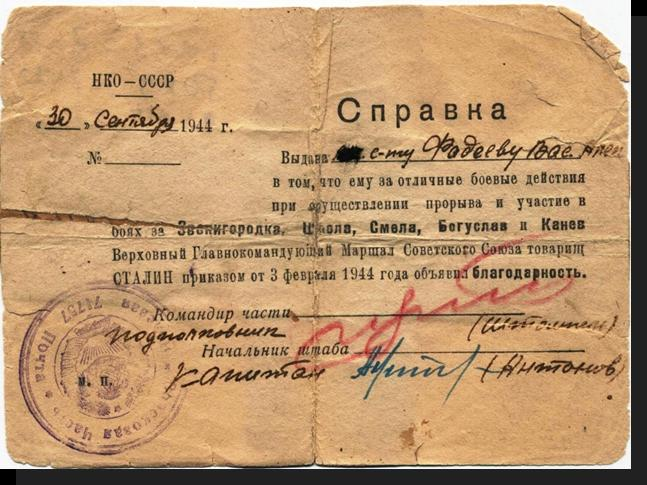 НКО—СССР
«30» Сентября 1944 г.
№
Справка
Выдана с-ту Фадееву Вас.
в том, что ему за отличные боевые действия
при осуществлении прорыва и участие в
боях за Звенигородка, Шпола, Смела, Богуслав и Канев
Верховный Главнокомандующий Маршал Советского Союза товарищ
СТАЛИН приказом от 3 февраля 1944 года объявил благодарность.
Командир части
подполковник
Начальник штаба
М. П.
капитан (Антонов)
Войсковая Часть Полевая Почта 71757